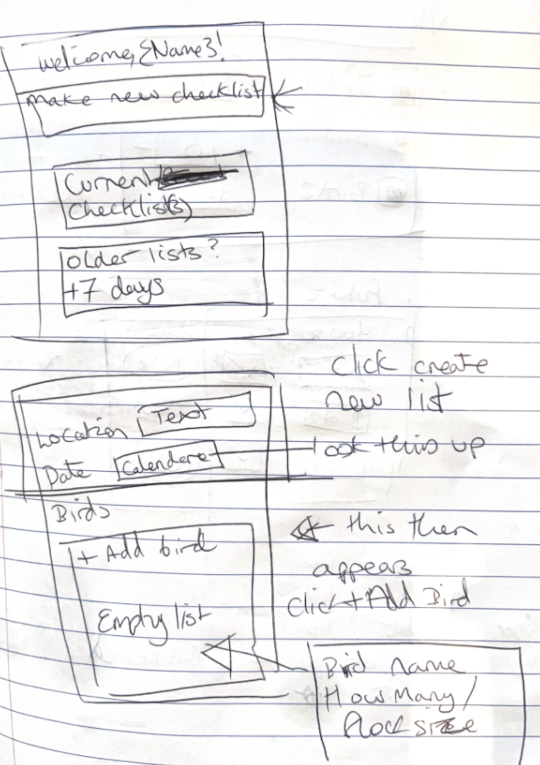 welcome, {Name}!
Make new checklist
Current
Checklist(s)
Older lists?
+7 days
click create
new list
Location Text
Date Calendar
Look this up
Birds
+ Add bird
Empty list
this then
appears
Click + Add Bird
Bird name
How Many/
flock size